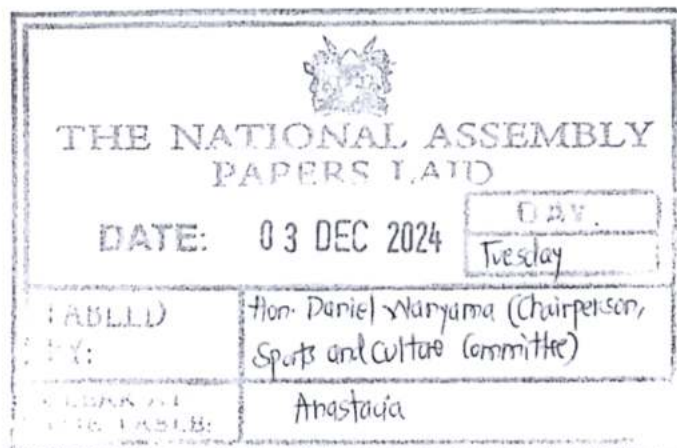 THE NATIONAL ASSEMBLY
PAPERS LAID
DATE: 03 DEC 2024
DAY.
Tuesday
TABLED
BY:
Hon. Daniel Wanyama (Chairperson,
Sports and Culture Committee)
CLERK AT
THE TABLE:
Anastacia